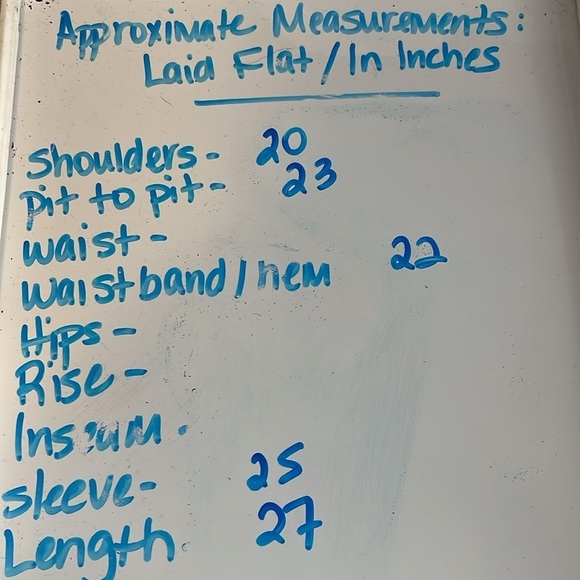 Approximate Measurements:
Laid Flat / In Inches
Shoulders - 20
pit to pit - 23
waist -
waistband / hem 22
Hips -
Rise -
Inseum.
sleeve - 25
Length 27